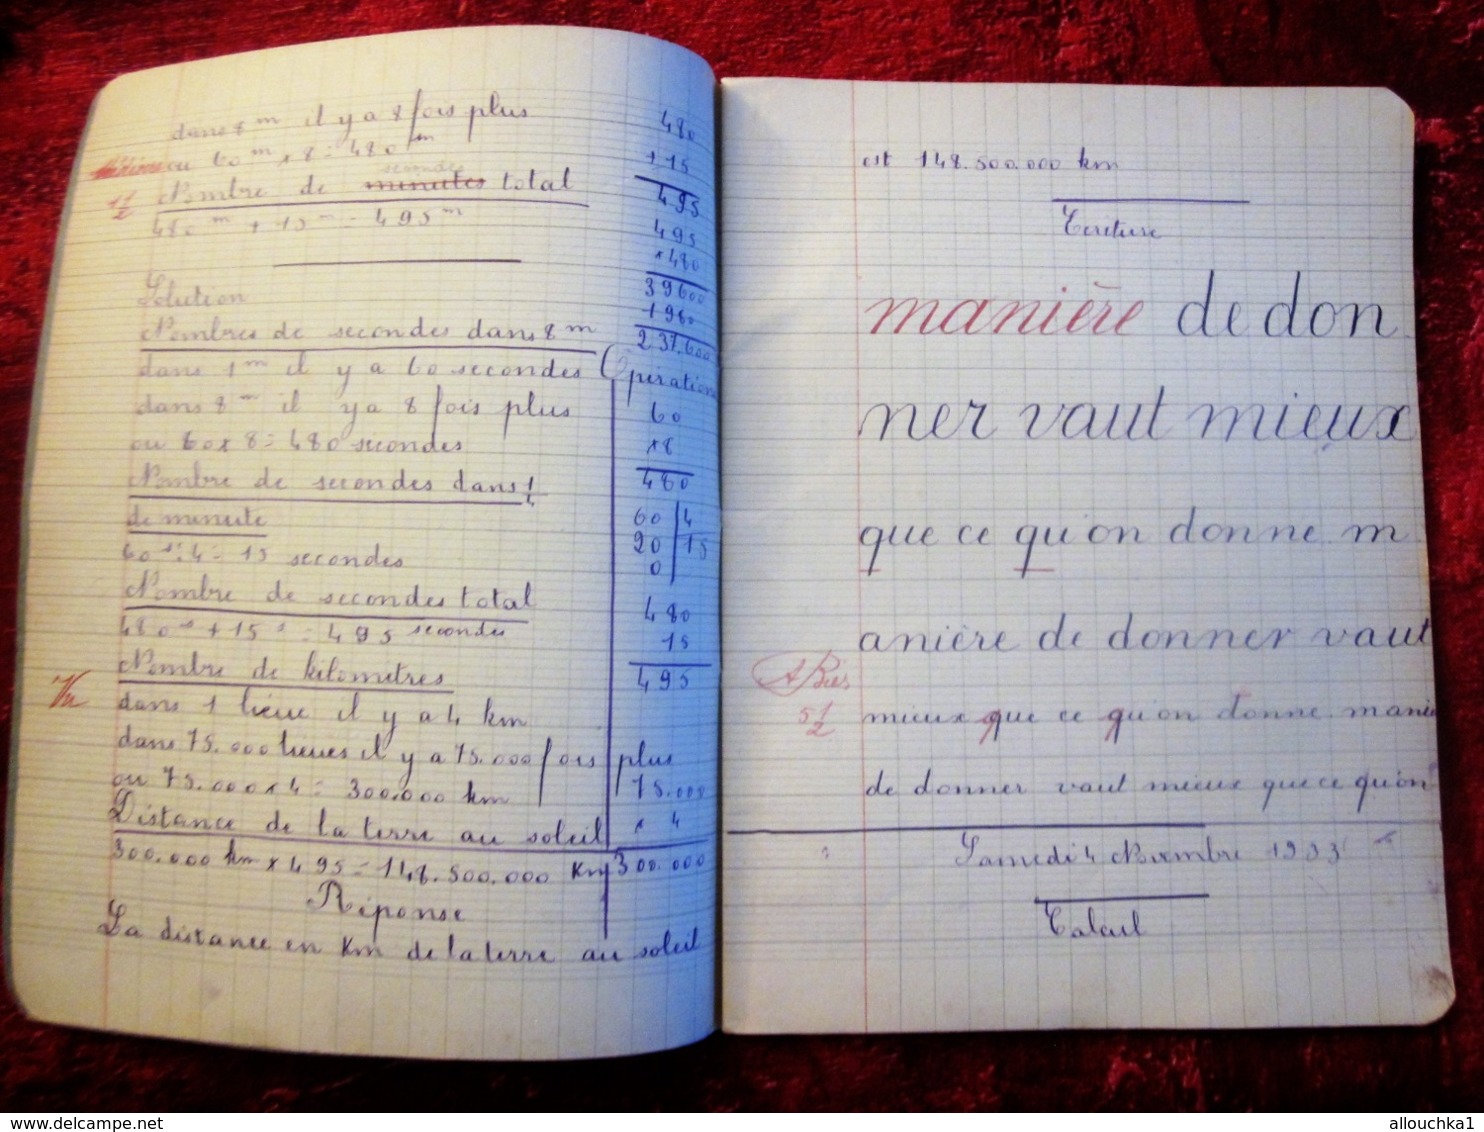 dans 8 m il y a 8 fois plus
ou 60 m x 8 = 480 m
secondes
Nombre de minutes total
1/2
480 m + 15 m = 495 m
Solution
Nombres de secondes dans 8 m
dans 1 m il y a 60 secondes
dans 8 m il y a 8 fois plus
ou 60 x 8 = 480 secondes
Nombre de secondes dans 1/4
de minute
60 s : 4 = 15 secondes
Nombre de secondes total
480 s + 15 s = 495 secondes
Nombre de kilomètres
Vu
dans 1 lieue il y a 4 km
dans 75.000 lieues il y a 75.000 fois plus
ou 75.000 x 4 = 300.000 km
Distance de la terre au soleil
300.000 km x 495 = 148.500.000 km
Réponse
La distance en km de la terre au soleil
480
+ 15
495
495
x 480
39600
1980
237.600
Opérations
60
x 8
480
60 | 4
20 | 15
0
480
15
495
75.000
x 4
300.000
est 148.500.000 km
Ecriture
manière de don
ner vaut mieux
que ce qu'on donne m
anière de donner vaut
A Bien
5 1/2
mieux que ce qu'on donne. maniè
de donner vaut mieux que ce qu'on
Samedi 4 Novembre 1933
Calcul
https://www.delcampe.net
allouchka1